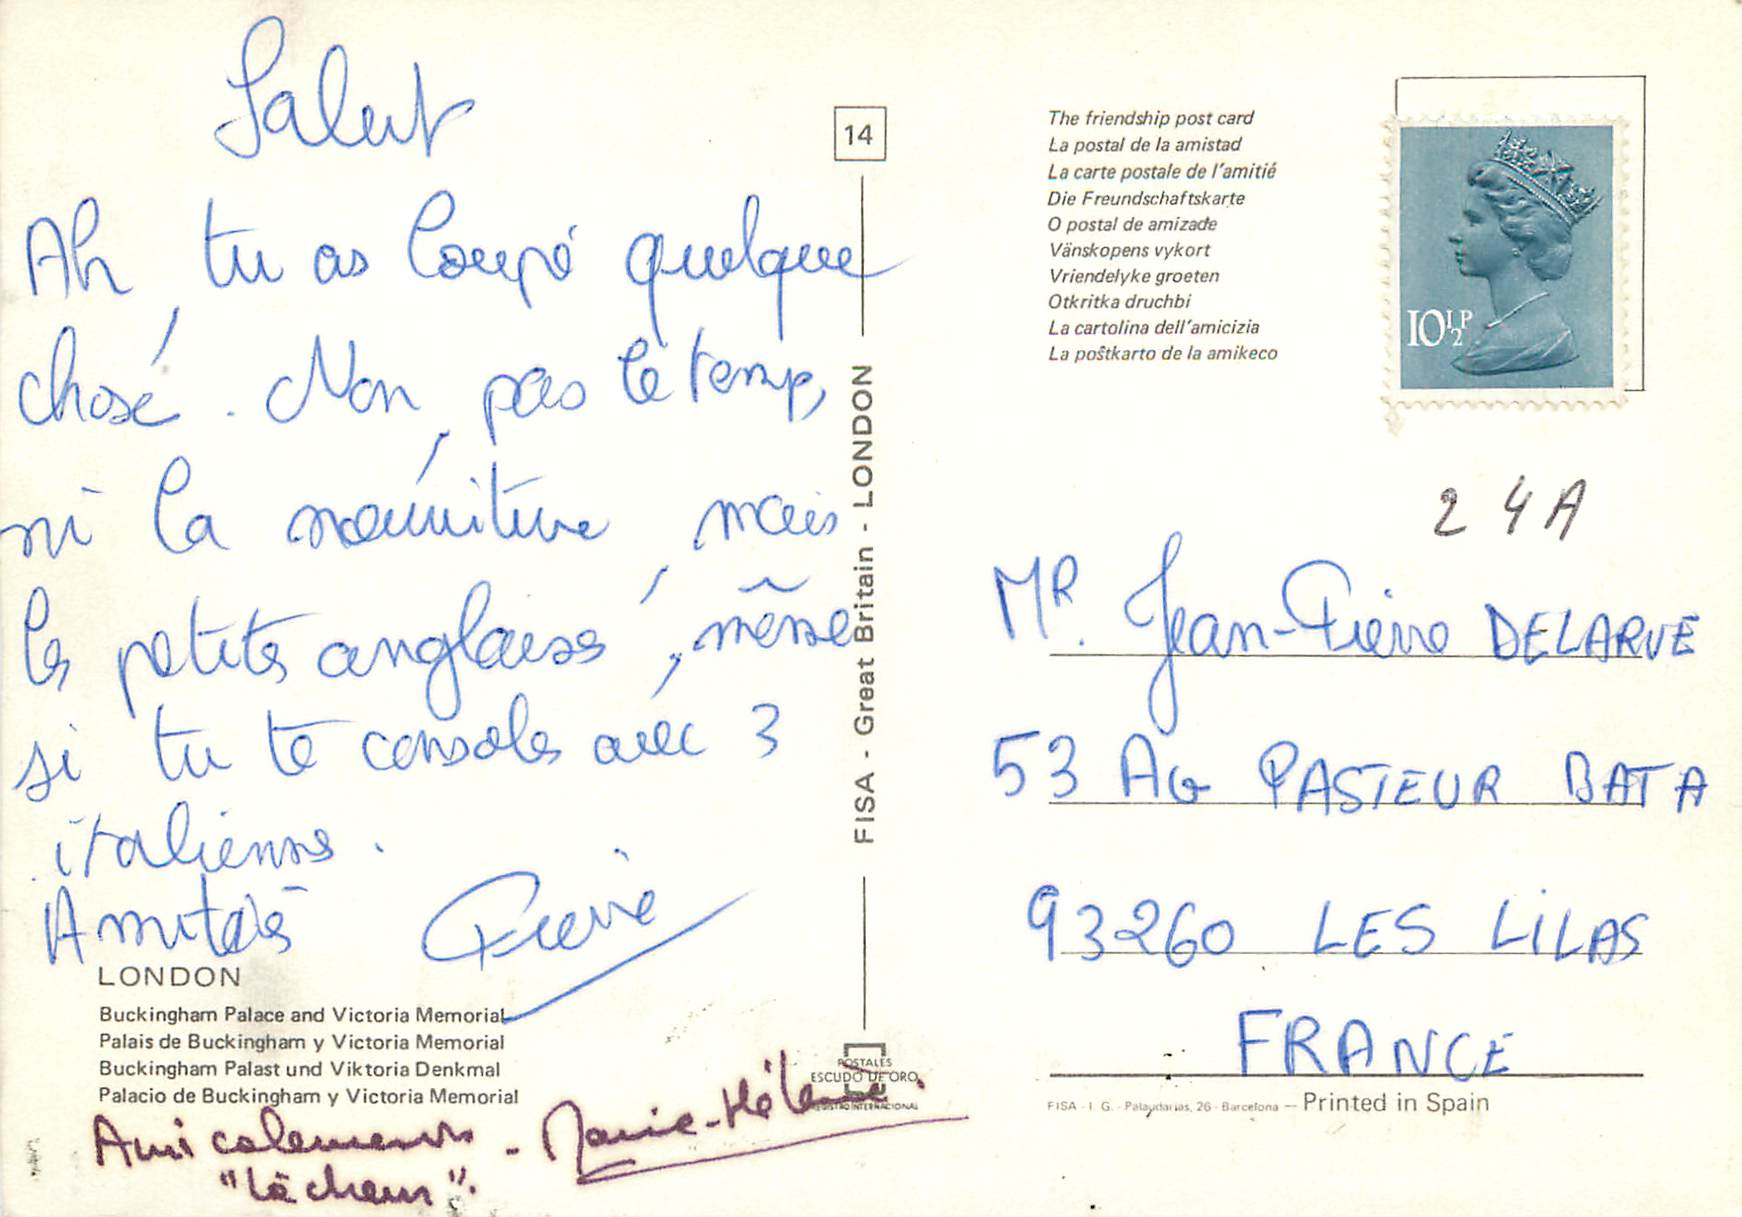 Salut
Ah, tu as loupé quelque
chose. Non, pas le temp,
ni la nourriture, mais
les petites anglaises, même
si tu te consoles avec 3
italiennes.
Amitiés Pierre
LONDON
Buckingham Palace and Victoria Memorial
Palais de Buckingham y Victoria Memorial
Buckingham Palast und Viktoria Denkmal
Palacio de Buckingham y Victoria Memorial
Amicalement - Marie-Hélène.
"lâcheur".
14
FISA - Great Britain - LONDON
POSTALES
ESCUDO DE ORO
REGISTRO INTERNACIONAL
The friendship post card
La postal de la amistad
La carte postale de l'amitié
Die Freundschaftskarte
O postal de amizade
Vänskopens vykort
Vriendelyke groeten
Otkritka druchbi
La cartolina dell'amicizia
La poŝtkarto de la amikeco
10½P
24A
MR. Jean-Pierre DELARUE
53 AV PASTEUR BAT A
93260 LES LILAS
FRANCE
FISA - I. G. - Palaudarias, 26 - Barcelona — Printed in Spain